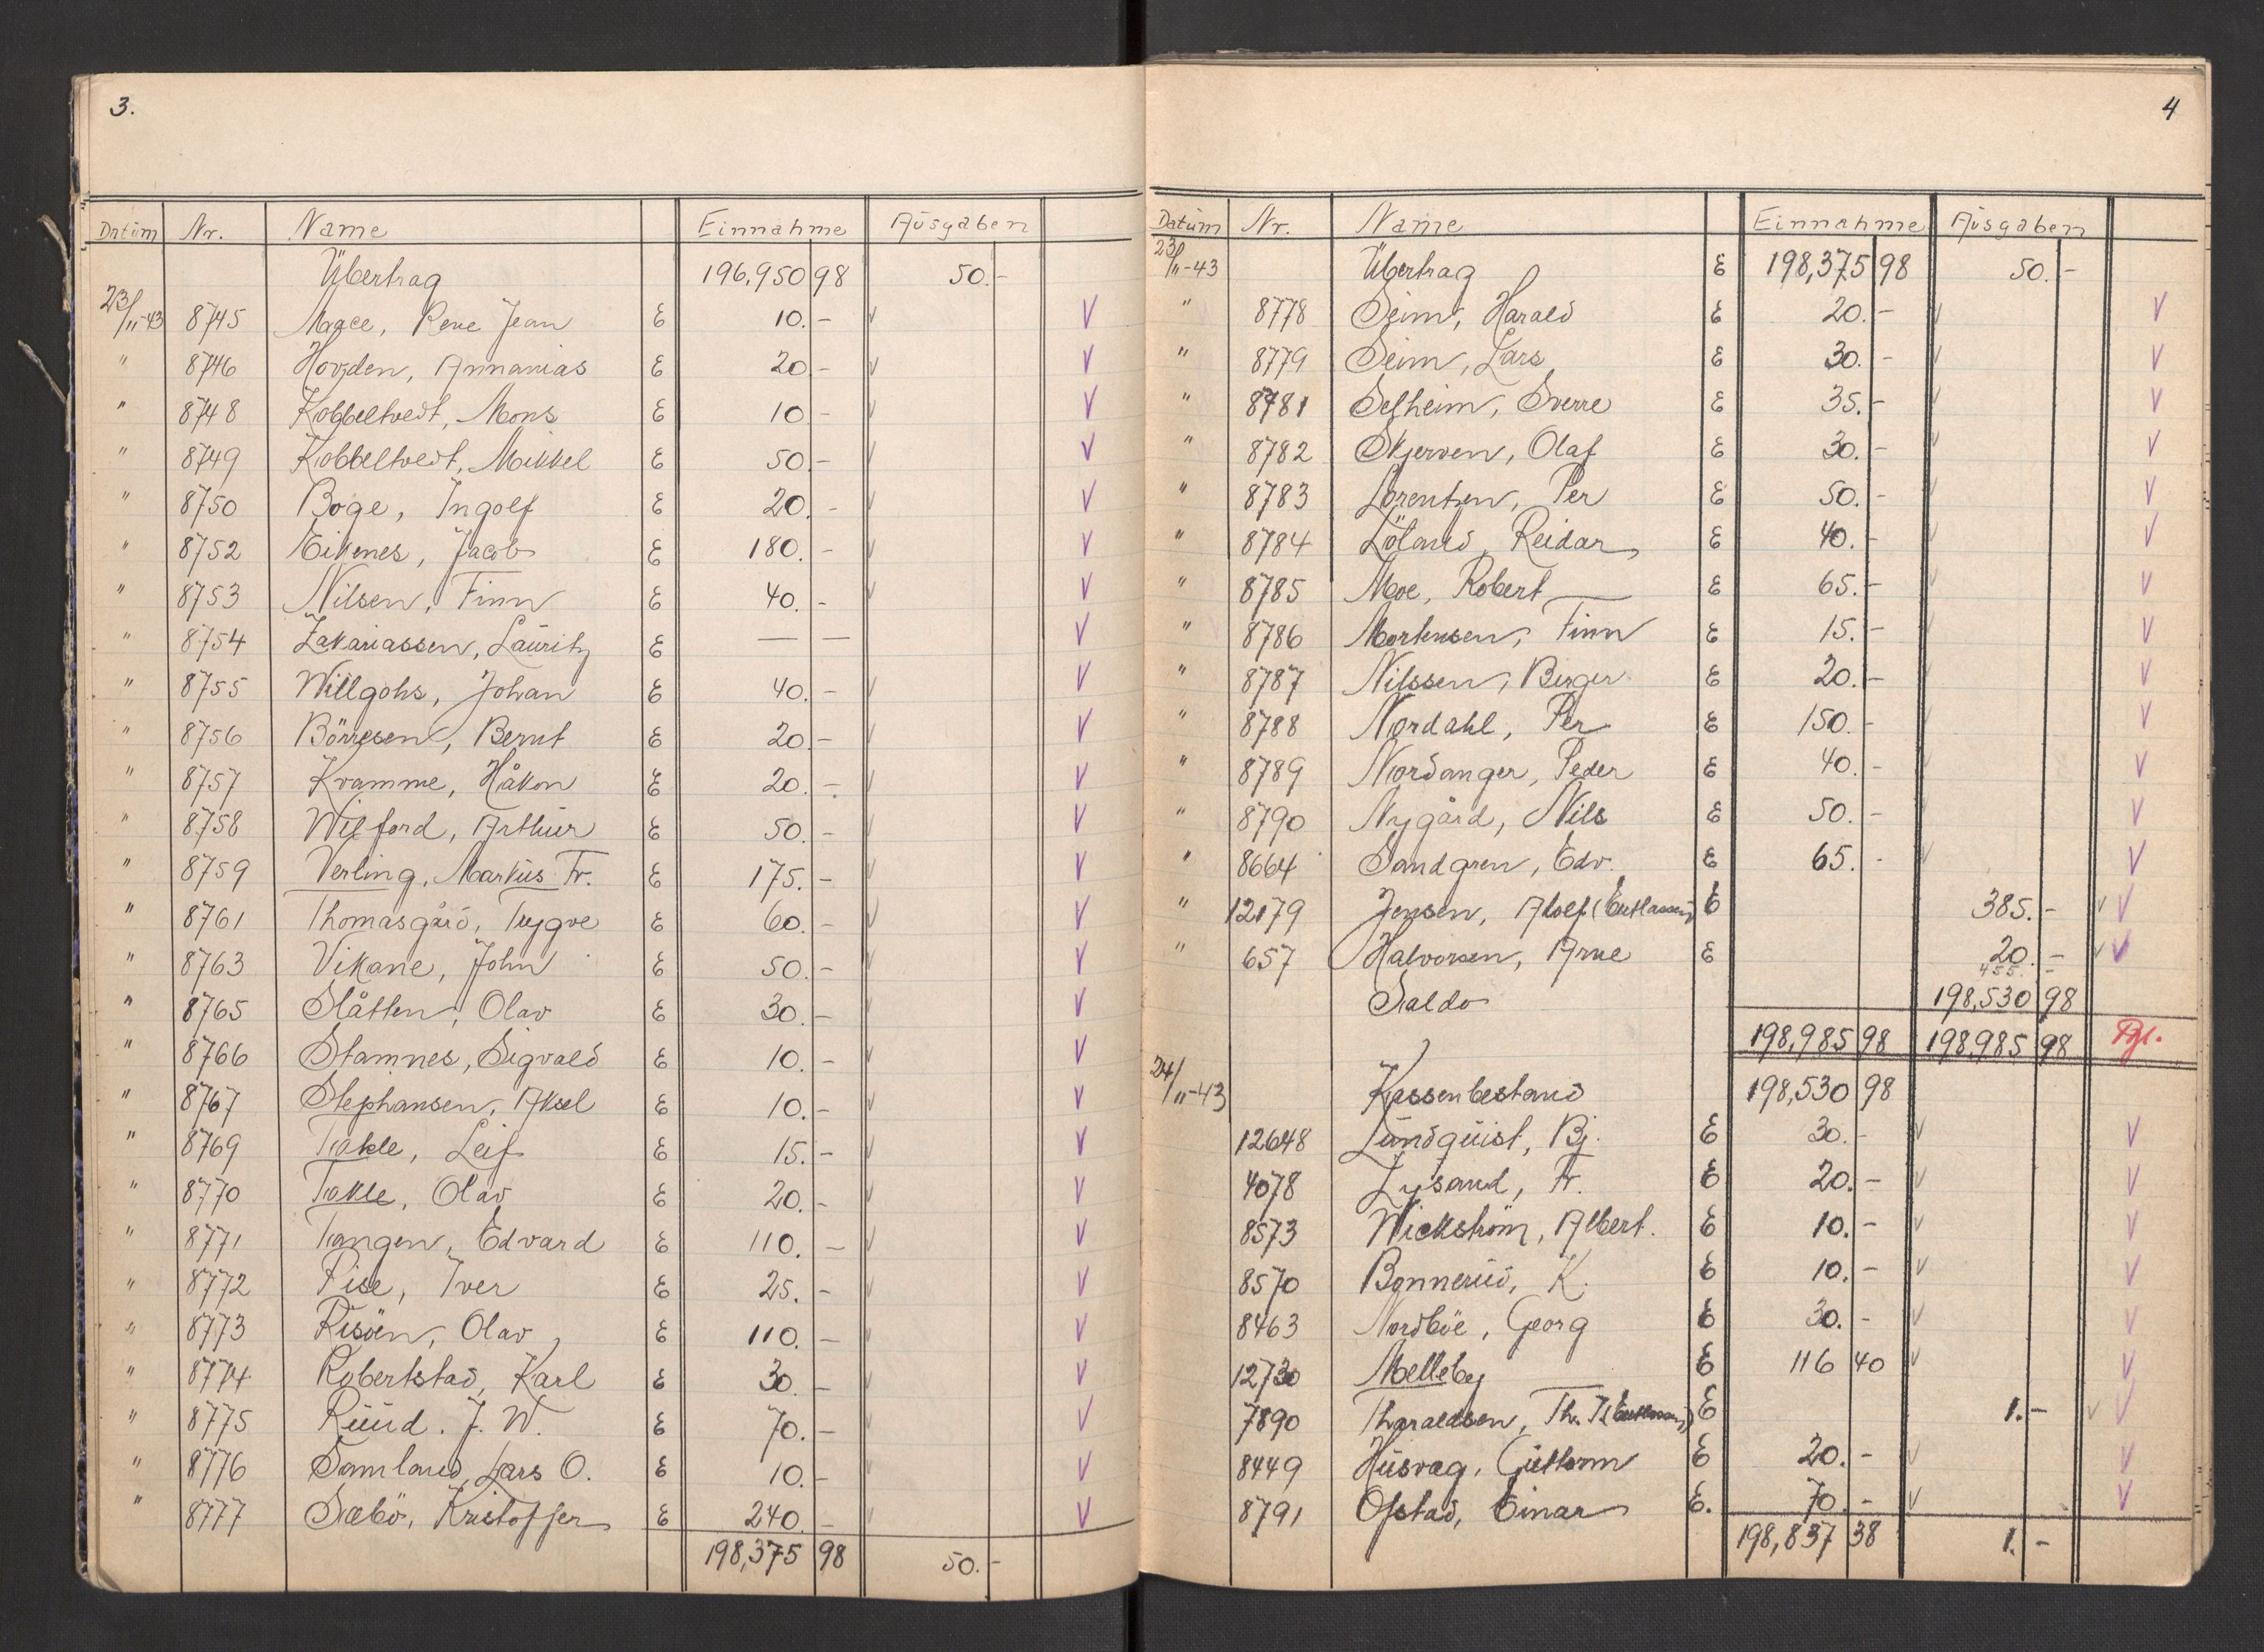 3.
Datum Nr. Name Einnahme Ausgaben
Übertrag 196,950 98 50.-
23/11-43 8745 Mace, Rene Jean E 10.- V V
" 8746 Hovden, Annanias E 20.- V V
" 8748 Kobbeltvedt, Mons E 10.- V V
" 8749 Kobbeltvedt, Mikkel E 50.- V V
" 8750 Boge, Ingolf E 20.- V V
" 8752 Eikenes, Jacob E 180.- V V
" 8753 Nilsen, Finn E 40.- V V
" 8754 Zakariassen, Lauritz E — — V
" 8755 Willgohs, Johan E 40.- V V
" 8756 Börresen, Bernt E 20.- V V
" 8757 Kvamme, Håkon E 20.- V V
" 8758 Wilford, Arthur E 50.- V V
" 8759 Verling, Markus Fr. E 175.- V V
" 8761 Thomasgård, Trygve E 60.- V V
" 8763 Vikane, John E 50.- V V
" 8765 Slåtten, Olav E 30.- V V
" 8766 Stamnes, Sigvald E 10.- V V
" 8767 Stephansen, Aksel E 10.- V V
" 8769 Takle, Leif E 15.- V V
" 8770 Takle, Olav E 20.- V V
" 8771 Tangen, Edvard E 110.- V V
" 8772 Rise, Iver E 25.- V V
" 8773 Risöen, Olav E 110.- V V
" 8774 Robertstad, Karl E 30.- V V
" 8775 Ruud. J. W. E 70.- V V
" 8776 Samland, Lars O. E 10.- V V
" 8777 Sæbö, Kristoffer E 240.- V V
198,375 98 50.-
4
Datum Nr. Name Einnahme Ausgaben
23/11-43 Übertrag E 198,375 98 50.-
" 8778 Seim, Harald E 20.- V V
" 8779 Seim, Lars E 30.- V V
" 8781 Selheim, Sverre E 35.- V V
" 8782 Skjerven, Olaf E 30.- V V
" 8783 Lorentzen, Per E 50.- V V
" 8784 Löland, Reidar E 40.- V V
" 8785 Moe, Robert E 65.- V V
" 8786 Mortensen, Finn E 15.- V V
" 8787 Nilssen, Birger E 20.- V V
" 8788 Nordahl, Per E 150.- V V
" 8789 Nordanger, Peder E 40.- V V
" 8790 Nygård, Nils E 50.- V V
" 8664 Sandgren, Edv. E 65.- V V
" 12179 Jensen, Adolf (Entlassen) E 385.- V V
" 657 Halvorsen, Arne E 20.- V V
455.-
Saldo 198,530 98
198,985 98 198,985 98
24/11-43 Kassenbestand 198,530 98
12648 Lundquist, Bj. E 30.- V V
4078 Lysand, Fr. E 20.- V V
8573 Wickström, Albert. E 10.- V V
8570 Bonnerud, K. E 10.- V V
8463 Nordböe, Georg E 30.- V V
12730 Melleby E 116 40 V V
7890 Tharaldsen, Th. (Entlassen) E 1.- V V
8449 Husvag, Guttorm E 20.- V V
8791 Ofstad, Einar E. 70.- V V
198,837 38 1.-